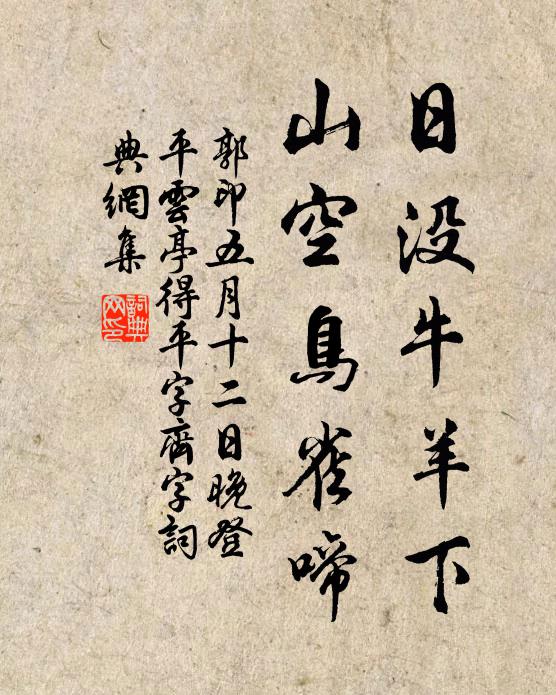 日没牛羊下
山空鳥雀啼
郭印五月十二日晚登
平雲亭得平字齊字詞
典網集
詞典
网印